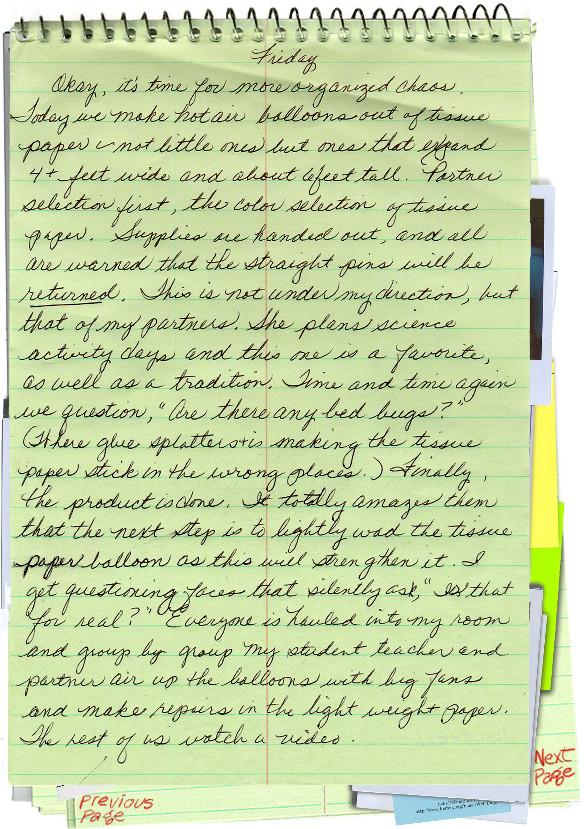 Friday
Okay, it's time for more organized chaos.
Today we make hot air balloons out of tissue
paper - not little ones but ones that expand
4+ feet wide and about 6 feet tall. Partner
selection first, the color selection of tissue
paper. Supplies are handed out, and all
are warned that the straight pins will be
returned. This is not under my direction, but
that of my partners. She plans science
activity days and this one is a favorite,
as well as a tradition. Time and time again
we question, "Are there any bed bugs?"
(Where glue splatters + is making the tissue
paper stick in the wrong places.) Finally,
the product is done. It totally amazes them
that the next step is to lightly wad the tissue
paper balloon as this will strengthen it. I
get questioning faces that silently ask, "Is that
for real?" Everyone is hauled into my room
and group by group my student teacher and
partner air up the balloons with big fans
and make repairs in the light weight paper.
The rest of us watch a video.
Previous
Page
Next
Page